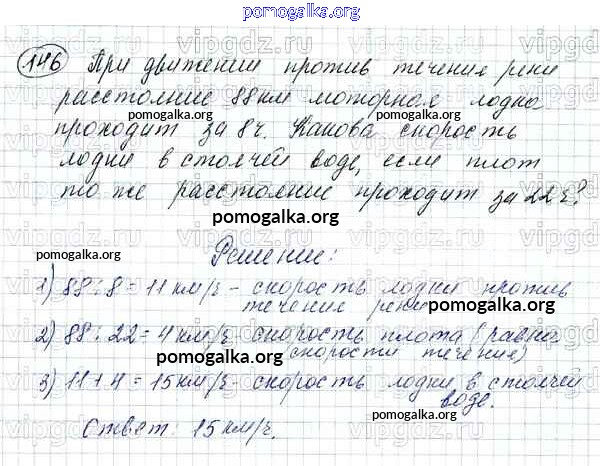 pomogalka.org
146 При движении против течения реки
расстояние 88 км моторная лодка
проходит за 8 ч. Какова скорость
лодки в стоячей воде, если плот
то же расстояние проходит за 22 ч?
Решение:
1) 88 : 8 = 11 км/ч - скорость лодки против
течения реки
2) 88 : 22 = 4 км/ч - скорость плота (равна
скорости течения)
3) 11 + 4 = 15 км/ч - скорость лодки в стоячей
воде.
Ответ: 15 км/ч.